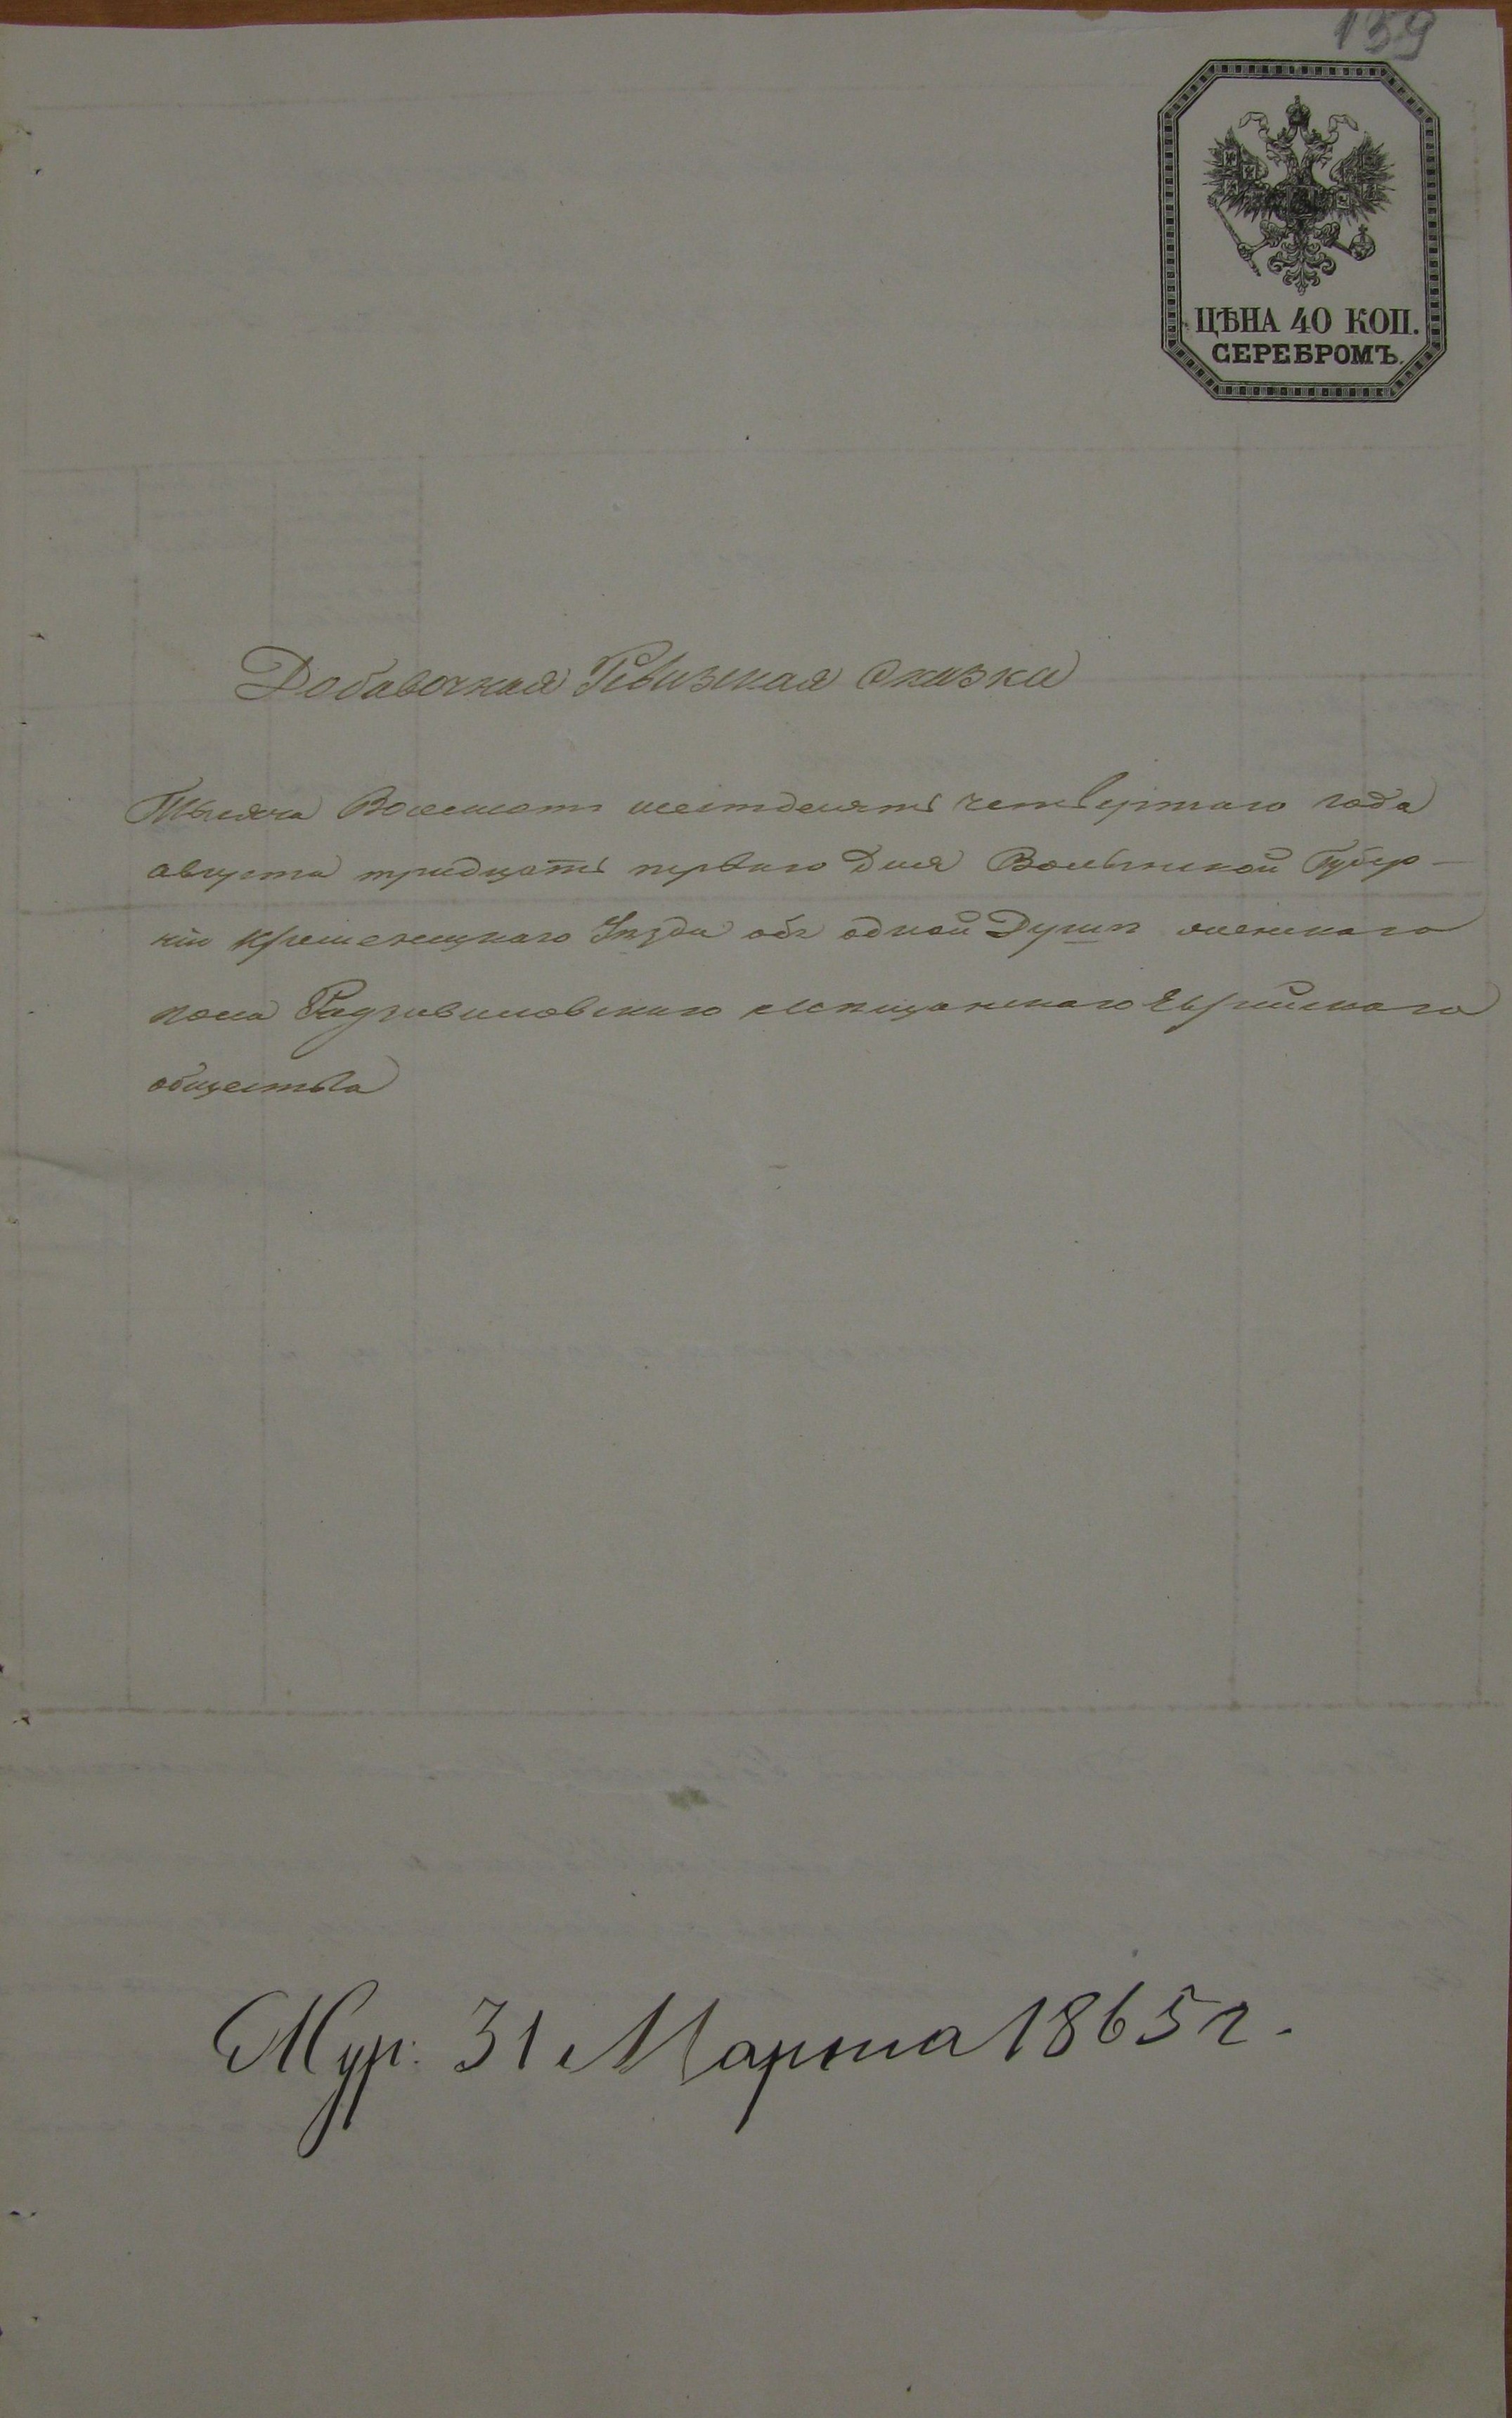 139
ЦѢНА 40 КОП.
СЕРЕБРОМЪ.
Добавочная Ревизская Сказка
Тысяча Восемсотъ шестдесятъ четвертаго года
августа тридцать перваго Дня Волынской Губер-
ніи Кременецкаго Уѣзда объ одной Душѣ женскаго
пола Радзивиловскаго мѣщанскаго Еврейскаго
общества
31 Марта 1865 г.